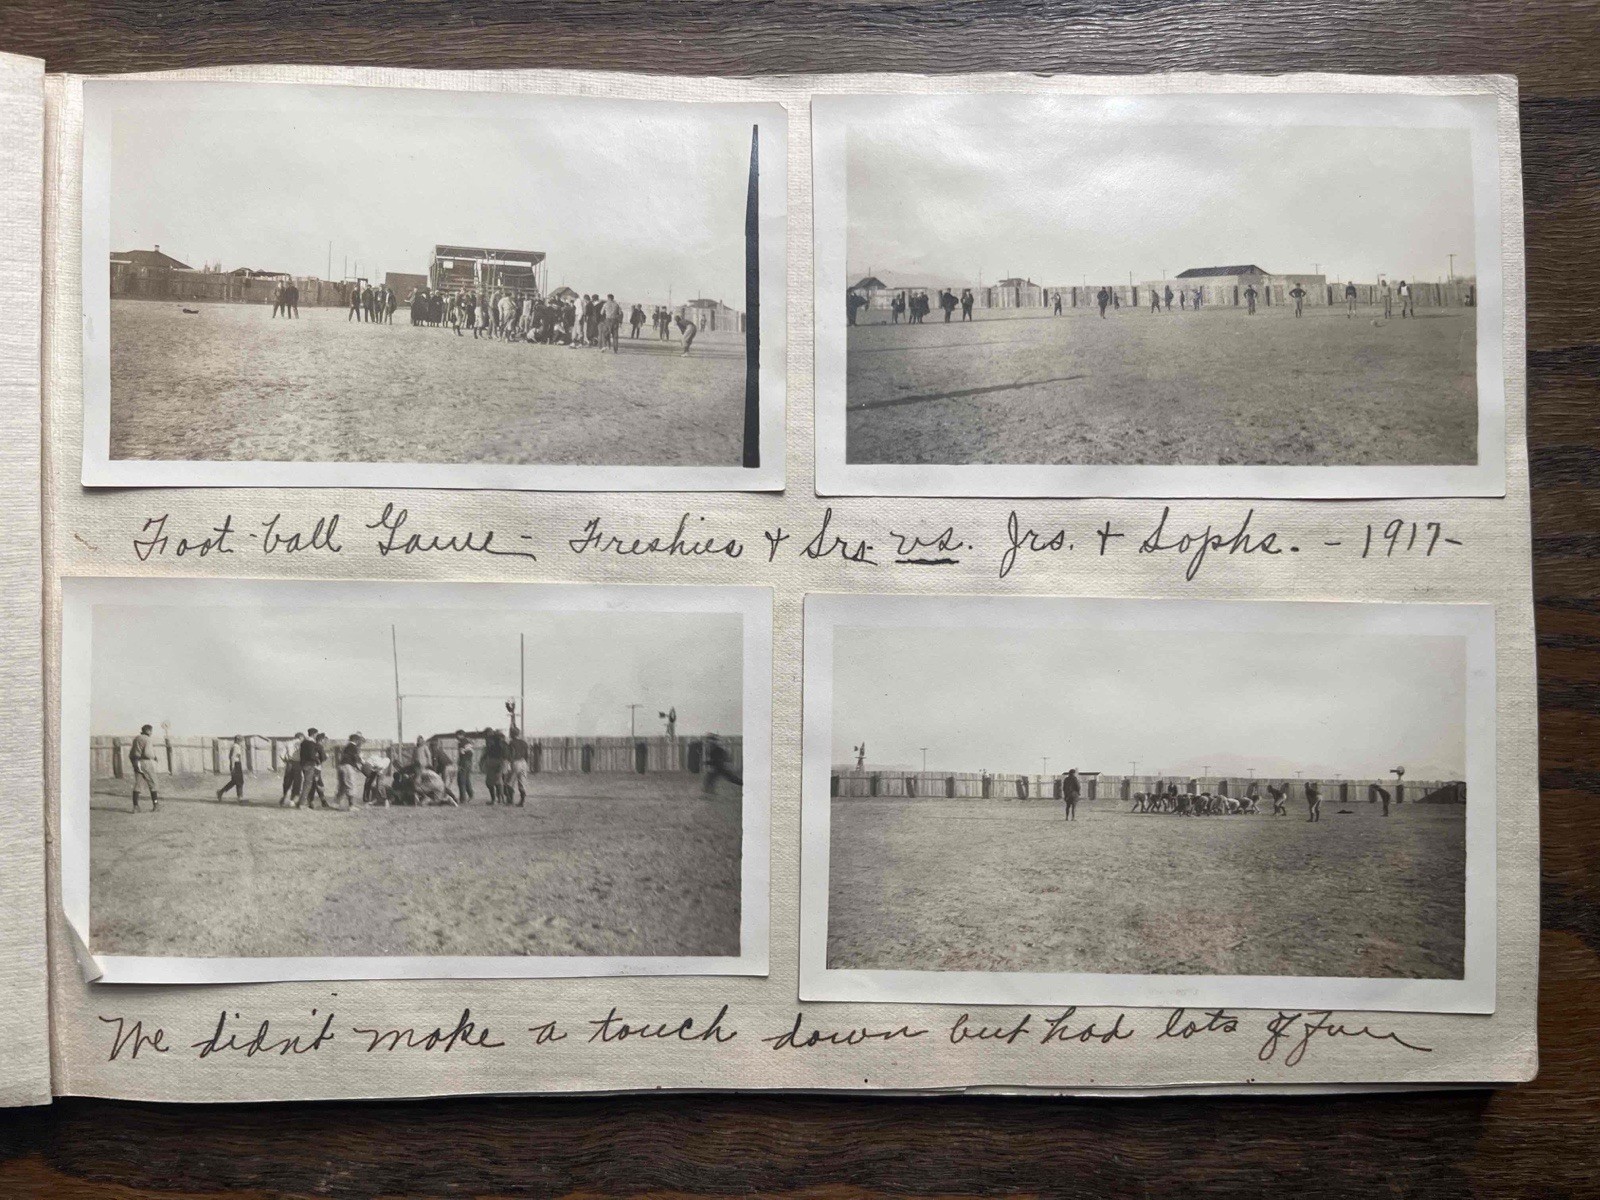 Foot-ball Game - Freshies + Srs. vs. Jrs. + Sophs. - 1917 -
We didn't make a touch down but had lots of fun